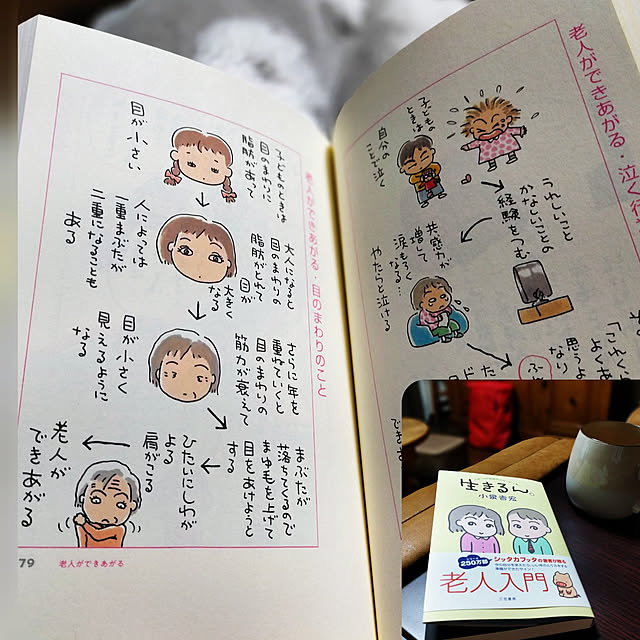 老人ができあがる・泣く行
子どもの
ときは
自分の
ことで泣く
うれしいこと
かなしいことの
経験をつむ
共感力が
増して
涙もろく
なる…
やたらと泣ける
「これく
よくあ
思うよう
なり
老人ができあがる・目のまわりのこと
子どものときは
目のまわりに
脂肪があって
目が小さい
大人になると
目のまわりの
脂肪がとれて
目が
大きく
なる
人によっては
一重まぶたが
二重になることも
ある
さらに年を
重ねていくと
目のまわりの
筋力が衰えて
目が小さく
見えるように
なる
まぶたが
落ちてくるので
まゆ毛を上げて
目をあけようと
する
ひたいにしわが
よる
肩がこる
老人が
できあがる
79
老人ができあがる
生きるん。
小泉吉宏
250万部
シッタカブッタの著者が贈る
老人入門